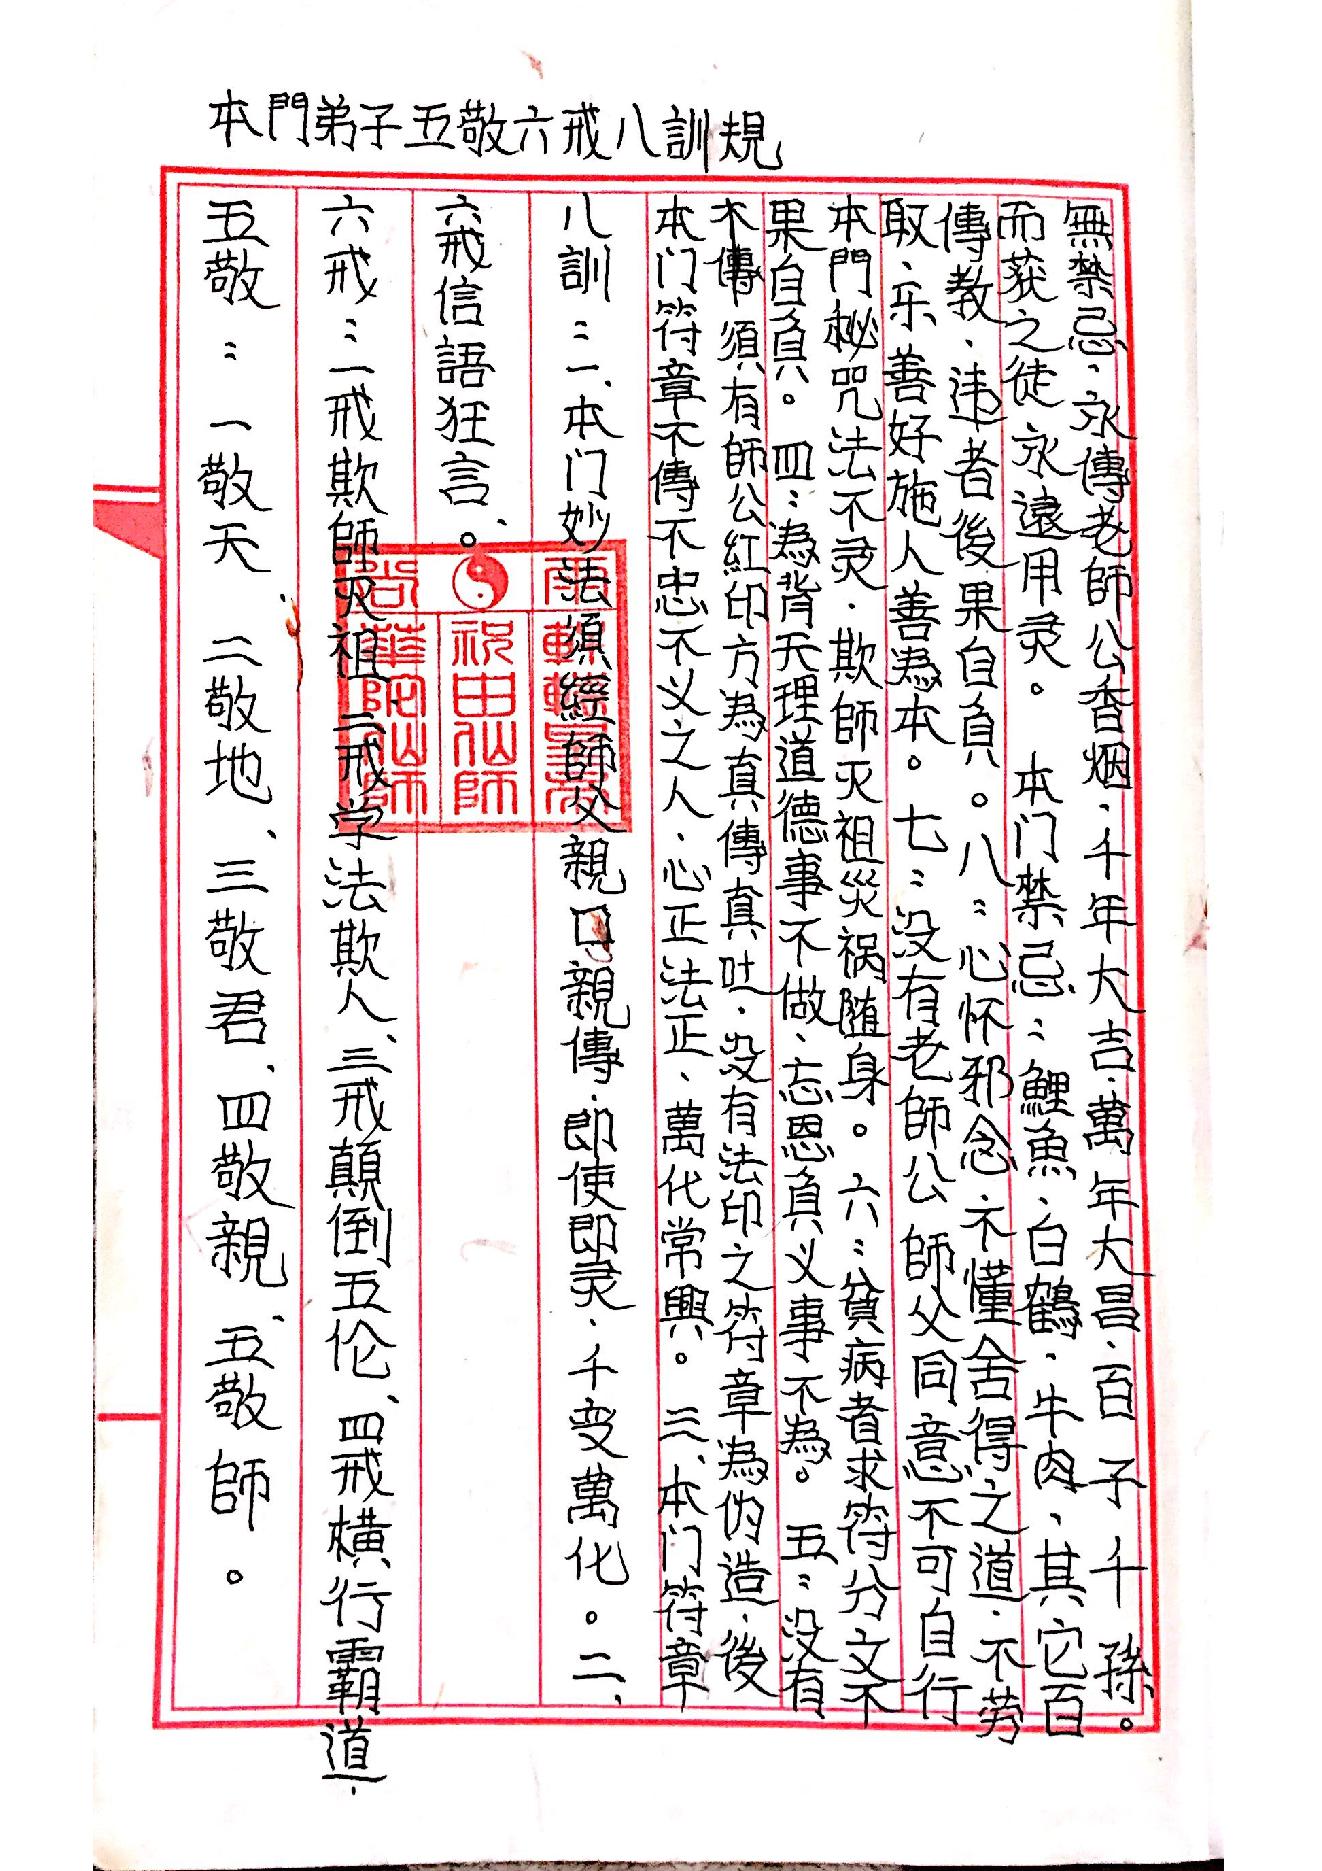 本門弟子五敬六戒八訓規
五敬：一敬天 二敬地、三敬君、四敬親、五敬師。
六戒：一戒欺師灭祖 二戒学法欺人、三戒顛倒五伦、四戒橫行霸道、
六戒信語狂言、。
八訓：一、本门妙法須經師父親口親傳、即使即灵、千变萬化。二、
本门符章不傳不忠不义之人、心正法正、萬代常興。三、本门符章
不傳須有師公紅印方為真傳真吐、没有法印之符章為伪造、後
果自負。四：為背天理道德事不做、忘恩負义事不為。五：没有
本門秘咒法不灵、欺師灭祖災祸随身。六：貧病者求符分文不
取、乐善好施人善為本。七：没有老師公師父同意不可自行
傳教、违者後果自負。八：心怀邪念不懂舍得之道、不劳
而获之徒永遠用灵。本门禁忌：鯉魚、白鶴、牛肉、其它百
無禁忌、永傳老師公香烟、千年大吉、萬年大昌、百子千孫。
祝由仙師
華陀仙師